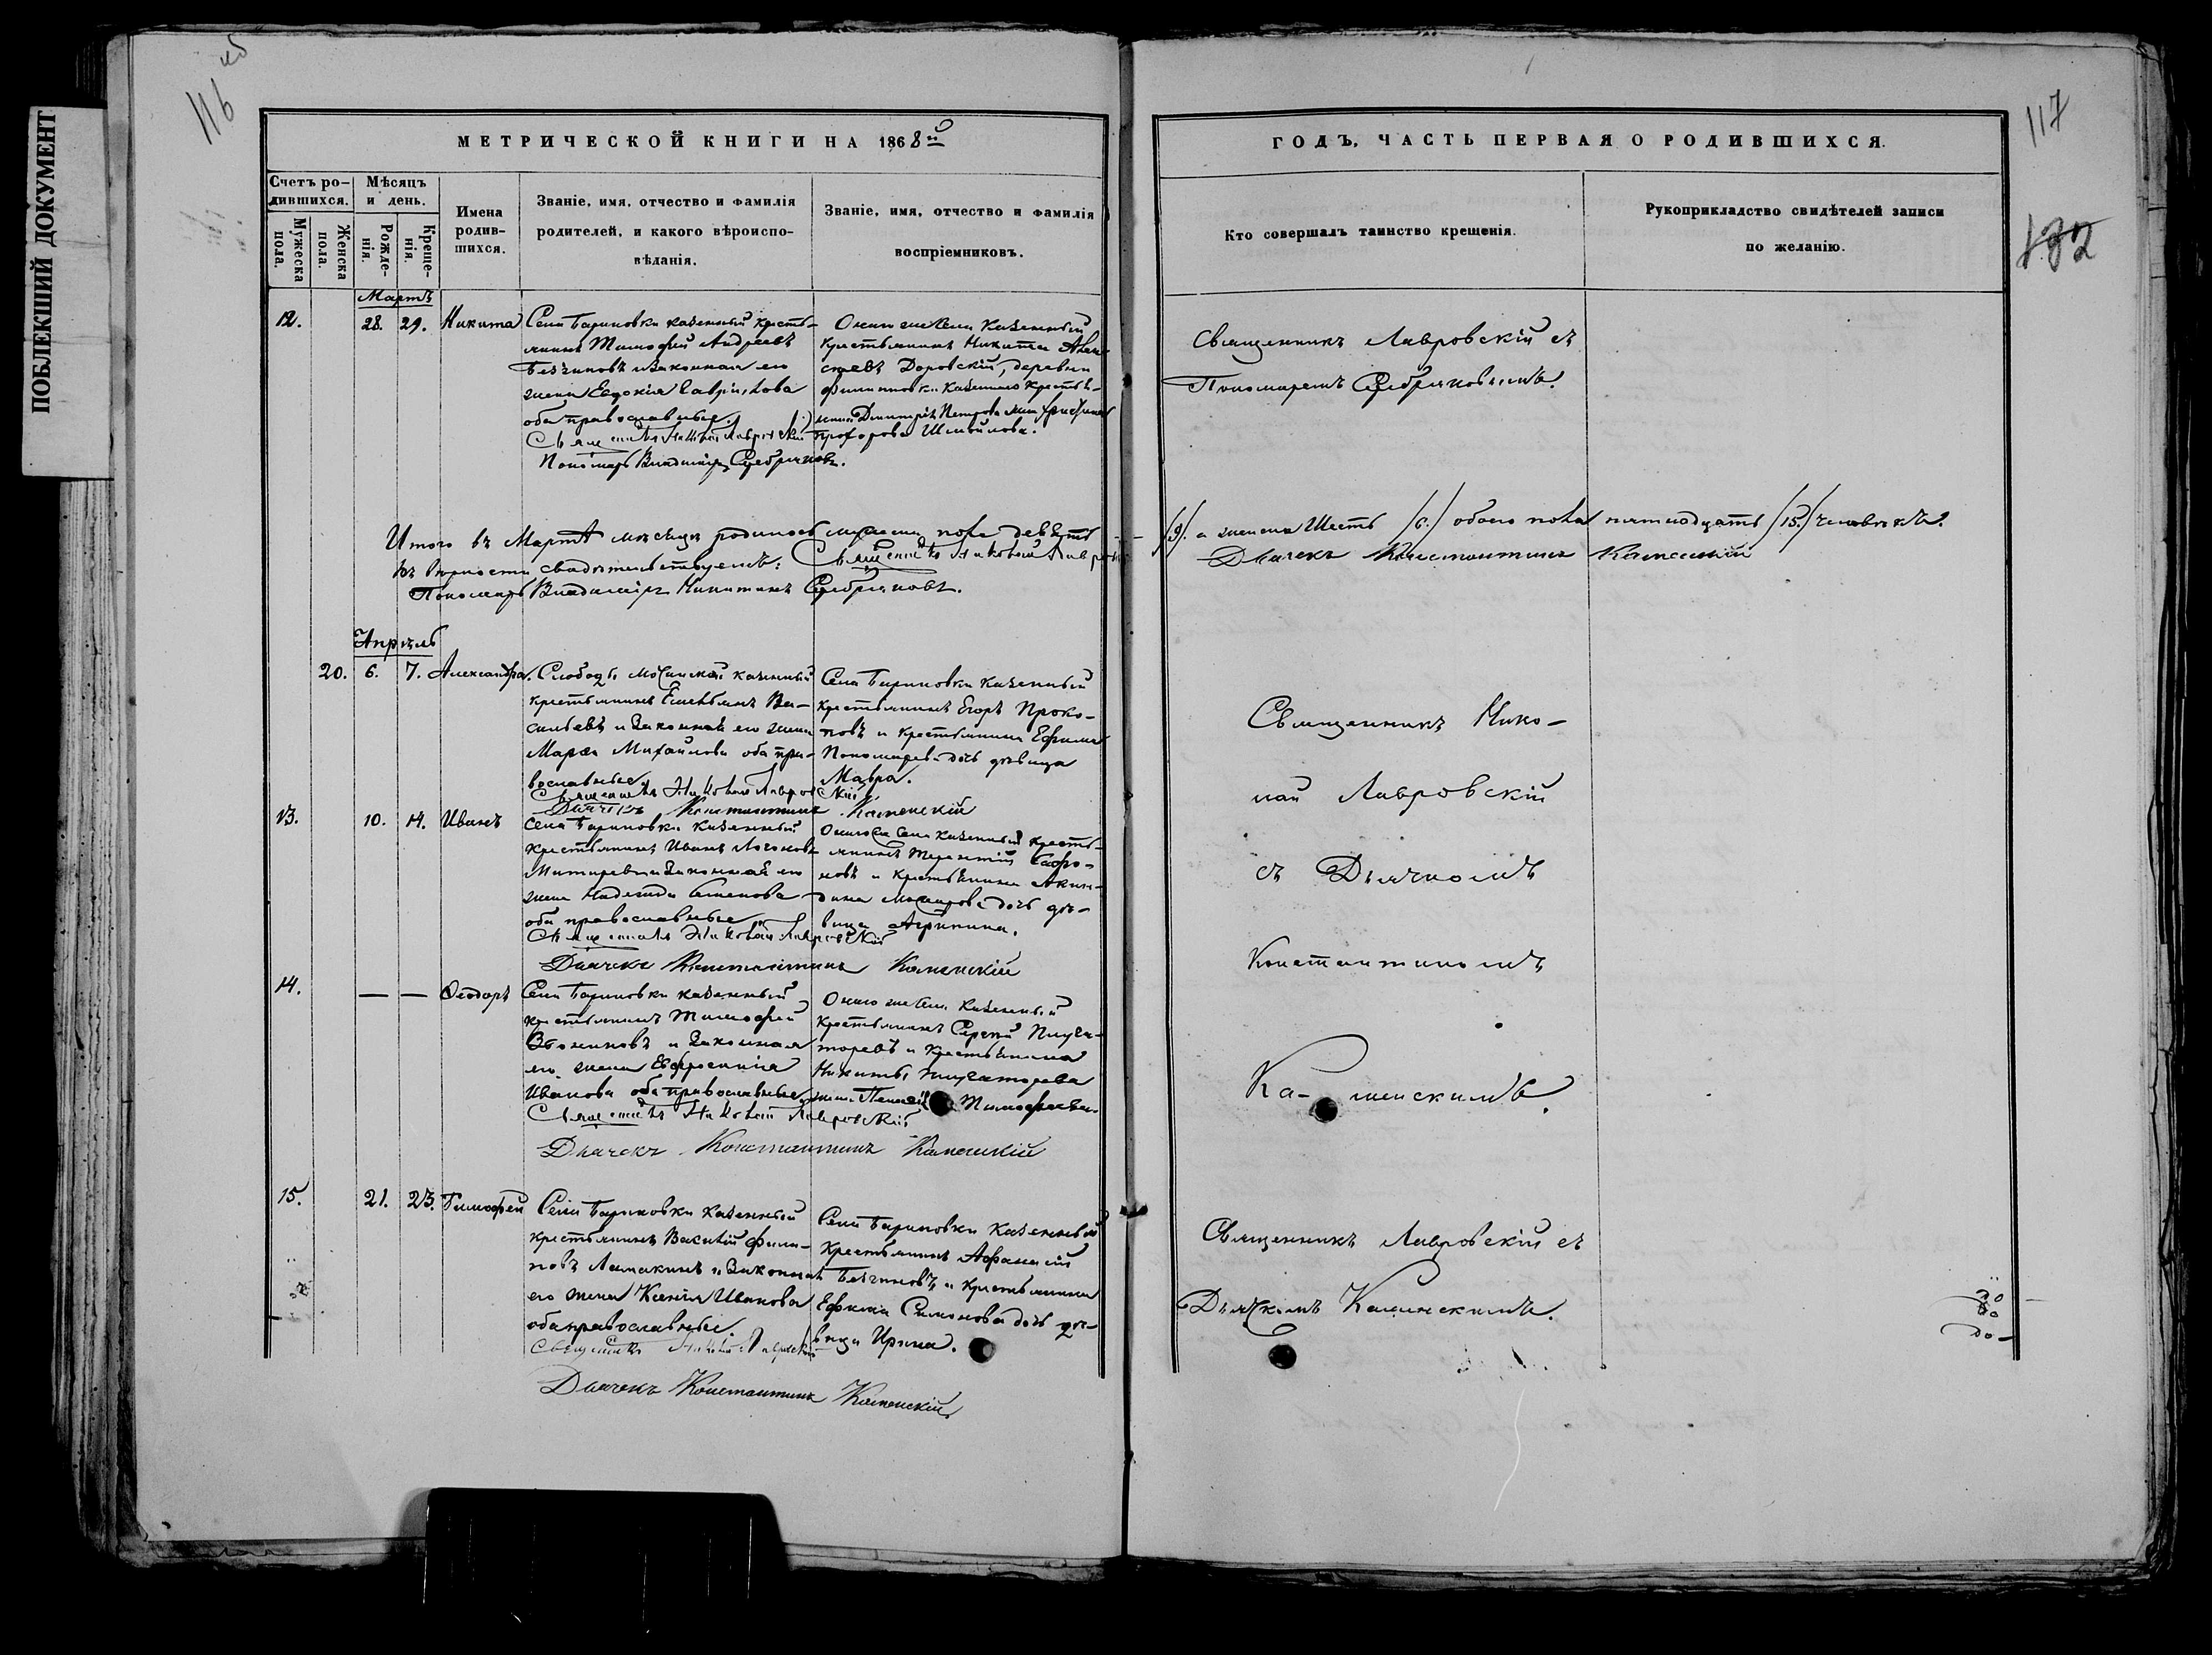 ПОБЛЕКШИЙ ДОКУМЕНТ
116 об
МЕТРИЧЕСКОЙ КНИГИ НА 1868й
Счетъ ро-
дившихся.
Мѣсяцъ
и день.
Мужеска
пола.
Женска
пола.
Рожде-
нія.
Креще-
нія.
Имена
родив-
шихся.
Званіе, имя, отчество и фамилія
родителей, и какого вѣроиспо-
вѣданія.
Званіе, имя, отчество и фамилія
воспріемниковъ.
Мартъ
12. 28. 29. Никита
Села Бариновки казенный кресть-
янинъ Тимофей Андреевъ
и законная его
жена Евдокія Гаврилова
оба православные.
Священникъ Николай Лавровскій
Пономарь Владиміръ Серебряковъ.
Онаго же села казенный
крестьянинъ Никита
Доровскій, деревни
Филипповки казеннаго крестья-
нина Димитрія Петрова жена
Прохорова
Итого въ Мартѣ мѣсяцѣ родилось мужеска пола девять
въ вѣрности свидѣтельствуемъ: Священникъ Николай Лавровскій
Пономарь Владиміръ Никитинъ Серебряковъ.
Апрѣль
20. 6. 7. Александра.
Слободы казенный
крестьянинъ Емельянъ Ва-
сильевъ и законная его жена
Марѳа Михайлова оба пра-
вославные.
Священникъ Николай Лавровскій
Дьячекъ Константинъ Каменскій
Села Бариновки казенный
крестьянинъ Егоръ Проко-
повъ и крестьянина Ефима
Пономарева дочь дѣвица
Мавра.
13. 10. 14. Иванъ
Села Бариновки казенный
крестьянинъ Иванъ
и законная его
жена Надежда Семенова
оба православные
Священникъ Николай Лавровскій
Дьячекъ Константинъ Каменскій
Онаго же села казенный кресть-
янинъ Терентій Сафро-
новъ и крестьянина Акин-
дина дочь дѣ-
вица Агрипина.
14. — — Ѳеодоръ
Села Бариновки казенный
крестьянинъ Тимофей
и законная
его жена Евфросинія
Иванова оба православные
Священникъ Николай Лавровскій
Дьячекъ Константинъ Каменскій
Онаго же села казенный
крестьянинъ Сергей Плуга-
торевъ и крестьянина
Никиты Плугаторева
жена Тимофеева
15. 21. 23. Тимофей
Села Бариновки казенный
крестьянинъ Василій Фили-
повъ Ламакинъ и законная
его жена Ксенія Иванова
оба православные.
Священникъ Николай Лавровскій
Дьячекъ Константинъ Каменскій
Села Бариновки казенный
крестьянинъ Афанасій
и крестьянина
Ефима Симонова дочь дѣ-
вица Ирина.
117
132
ГОДЪ, ЧАСТЬ ПЕРВАЯ О РОДИВШИХСЯ.
Кто совершалъ таинство крещенія.
Рукоприкладство свидѣтелей записи
по желанію.
Священникъ Лавровскій съ
Пономаремъ Серебряковымъ.
/9/. а женска шесть /6./ обоего пола пятнадцать /15./ человѣкъ.
Дьячекъ Константинъ Каменскій
Священникъ Нико-
лай Лавровскій
съ Дьячкомъ
Константиномъ
Ка- менскимъ.
Священникъ Лавровскій съ
Дьячкомъ Каменскимъ.